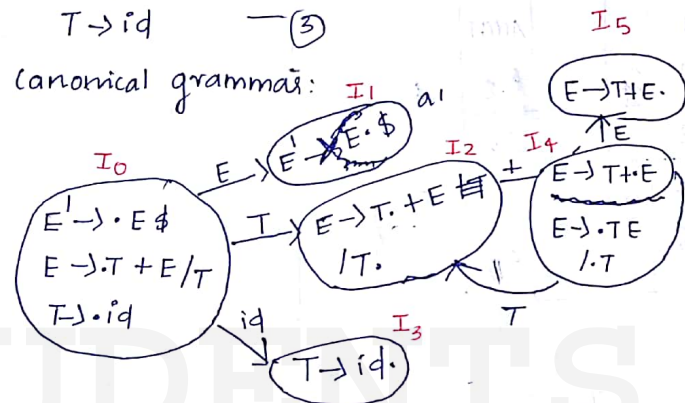 T → id — ③
Canonical grammar:
I0
E' → . E $
E → . T + E / T
T → . id
E
I1
E' → E . $
a1
T
I2
E → T . + E
/ T .
id
I3
T → id .
+
I4
E → T + . E
E → . T E
/ . T
T
E
I5
E → T + E .
UDENTS